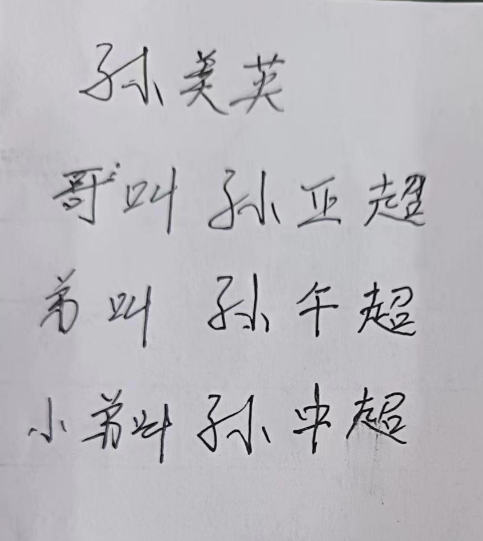 孙美英
哥叫孙正超
弟叫孙午超
小弟叫孙中超